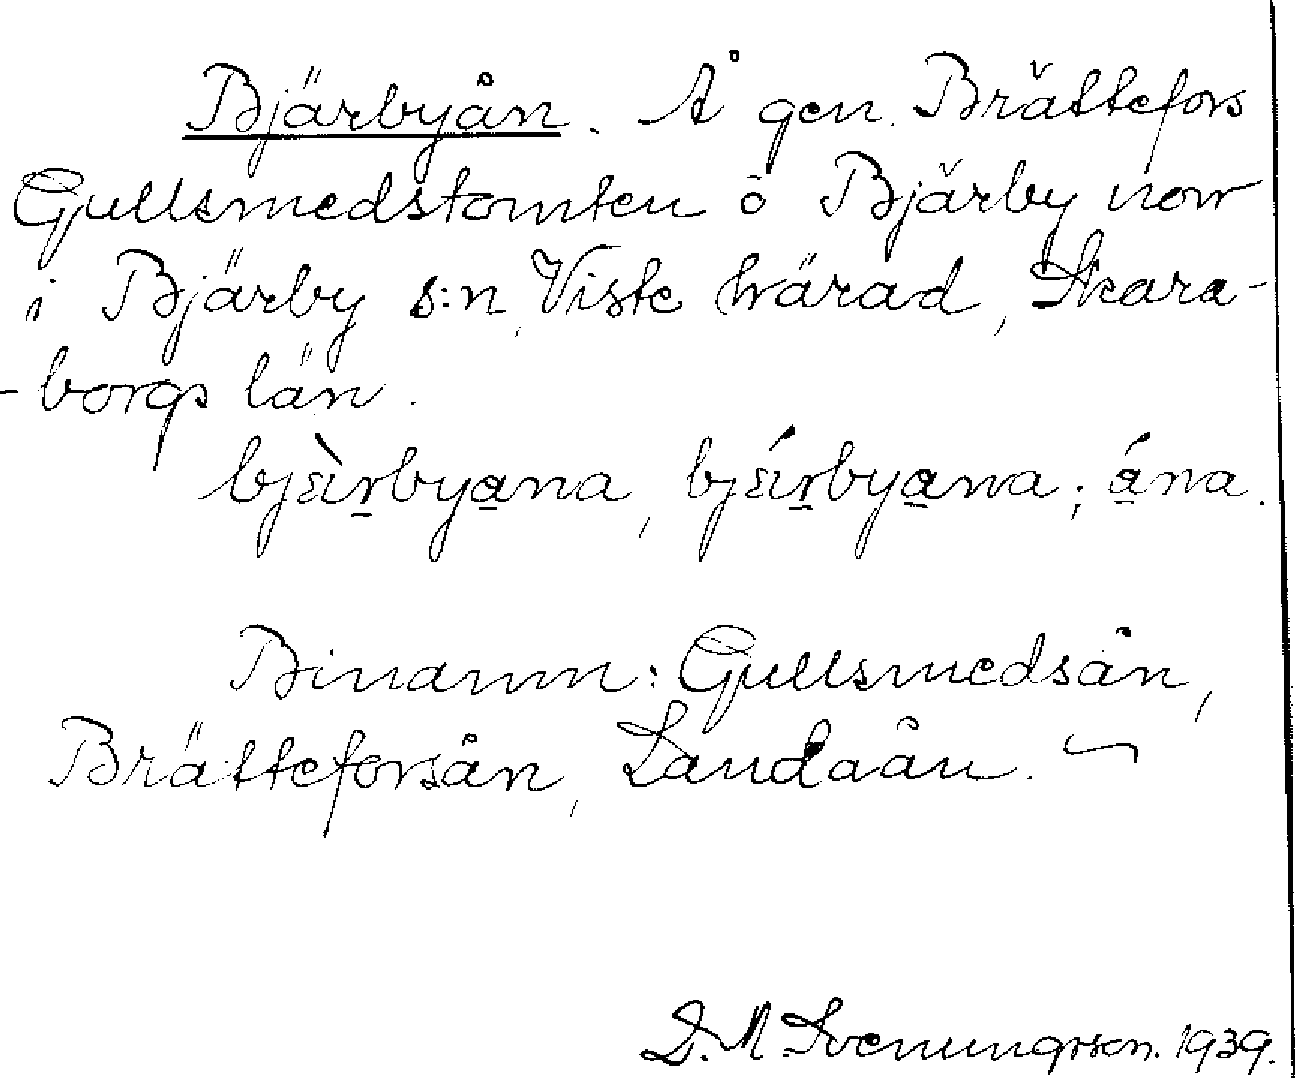 Bjärbyån. Å gen. Brättefors
Gullsmedstomten o Bjärby norr
i Bjärby s:n, Viste härad, Skara-
-borgs län.
bjɛ̀ṟbya̱na, bjɛ́ṟbya̱na; á̱na.
Binamn: Gullsmedsån,
Brätteforsån, Landaån.
D. M. Svenungsson. 1939.